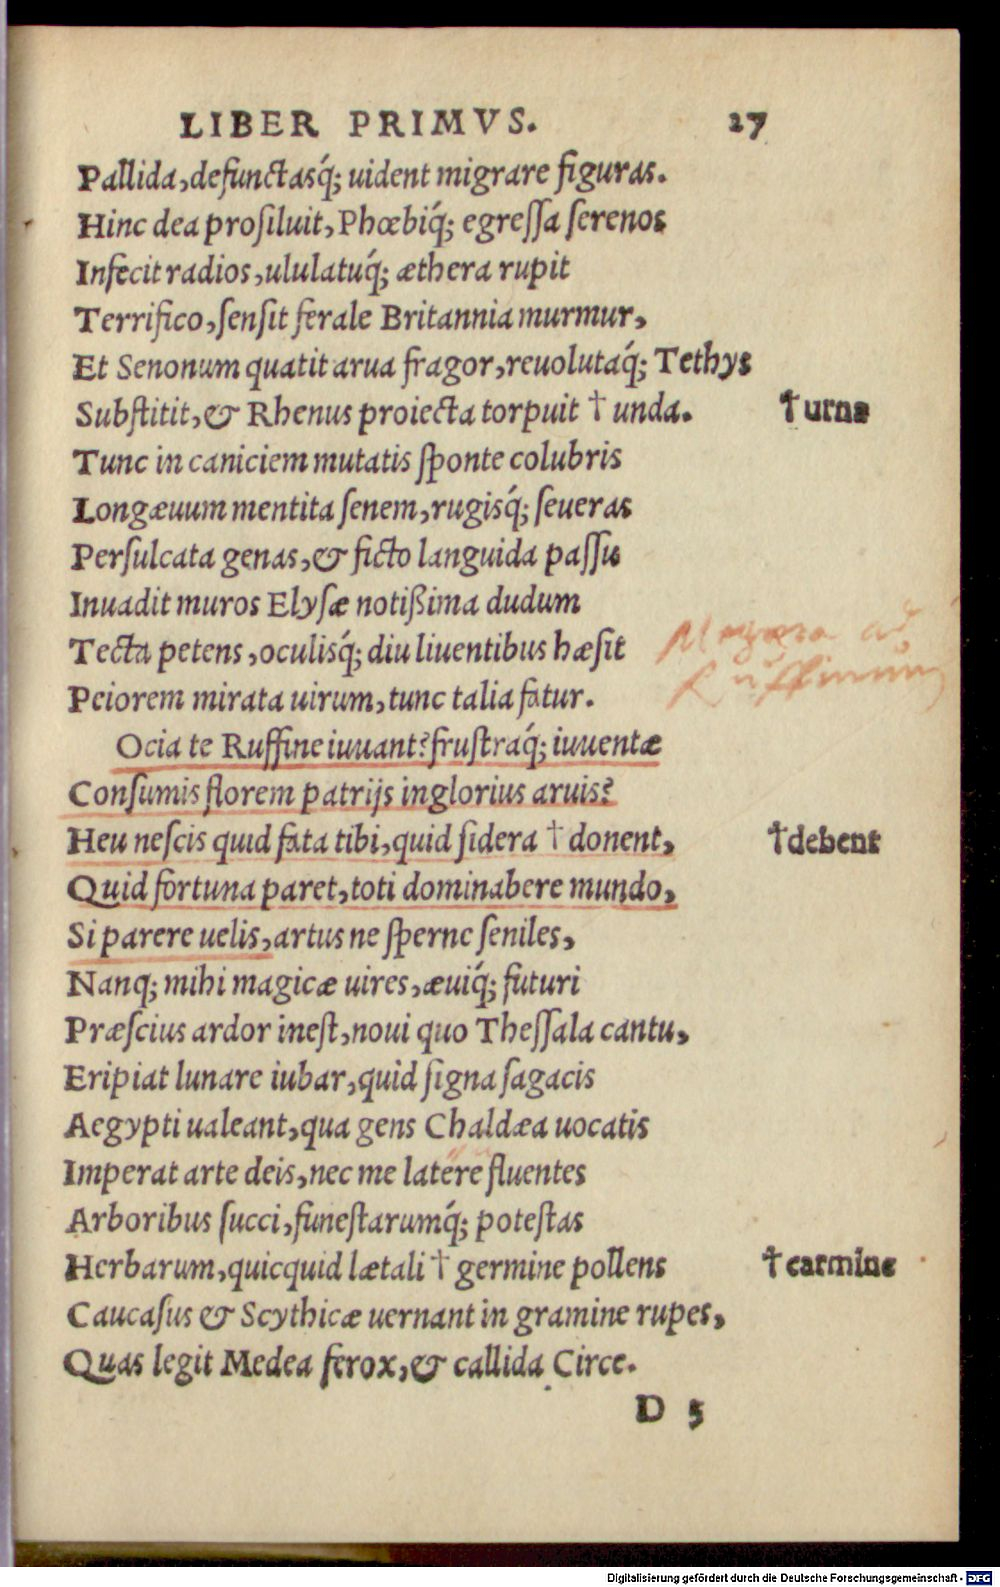 LIBER PRIMVS. 27
Pallida, defunctasq́; uident migrare figuras.
Hinc dea prosiluit, Phœbiq́; egreſſa ſerenos
Infecit radios, ululatuq́; æthera rupit
Terrifico, ſenſit ferale Britannia murmur,
Et Senonum quatit arua fragor, reuolutaq́; Tethys
Subſtitit, & Rhenus proiecta torpuit † unda. † urna
Tunc in caniciem mutatis ſponte colubris
Longæuum mentita ſenem, rugisq́; ſeueras
Perſulcata genas, & ficto languida paſſu
Inuadit muros Elyſæ notißima dudum
Tecta petens, oculisq́; diu liuentibus hæſit
Peiorem mirata uirum, tunc talia fatur.
Megæra ad
Ruffinum
Ocia te Ruffine iuuant? fruſtraq́; iuuentæ
Conſumis florem patrijs inglorius aruis?
Heu neſcis quid fata tibi, quid ſidera † donent, † debent
Quid fortuna paret, toti dominabere mundo,
Si parere uelis, artus ne ſperne ſeniles,
Nanq; mihi magicæ uires, æuiq́; futuri
Præſcius ardor ineſt, noui quo Theſſala cantu,
Eripiat lunare iubar, quid ſigna ſagacis
Aegypti ualeant, qua gens Chaldæa uocatis
Imperat arte deis, nec me latere fluentes
Arboribus ſucci, funeſtarumq́; poteſtas
Herbarum, quicquid lætali † germine pollens † carmine
Caucaſus & Scythicæ uernant in gramine rupes,
Quas legit Medea ferox, & callida Circe.
D 5
Digitalisierung gefördert durch die Deutsche Forschungsgemeinschaft - DFG